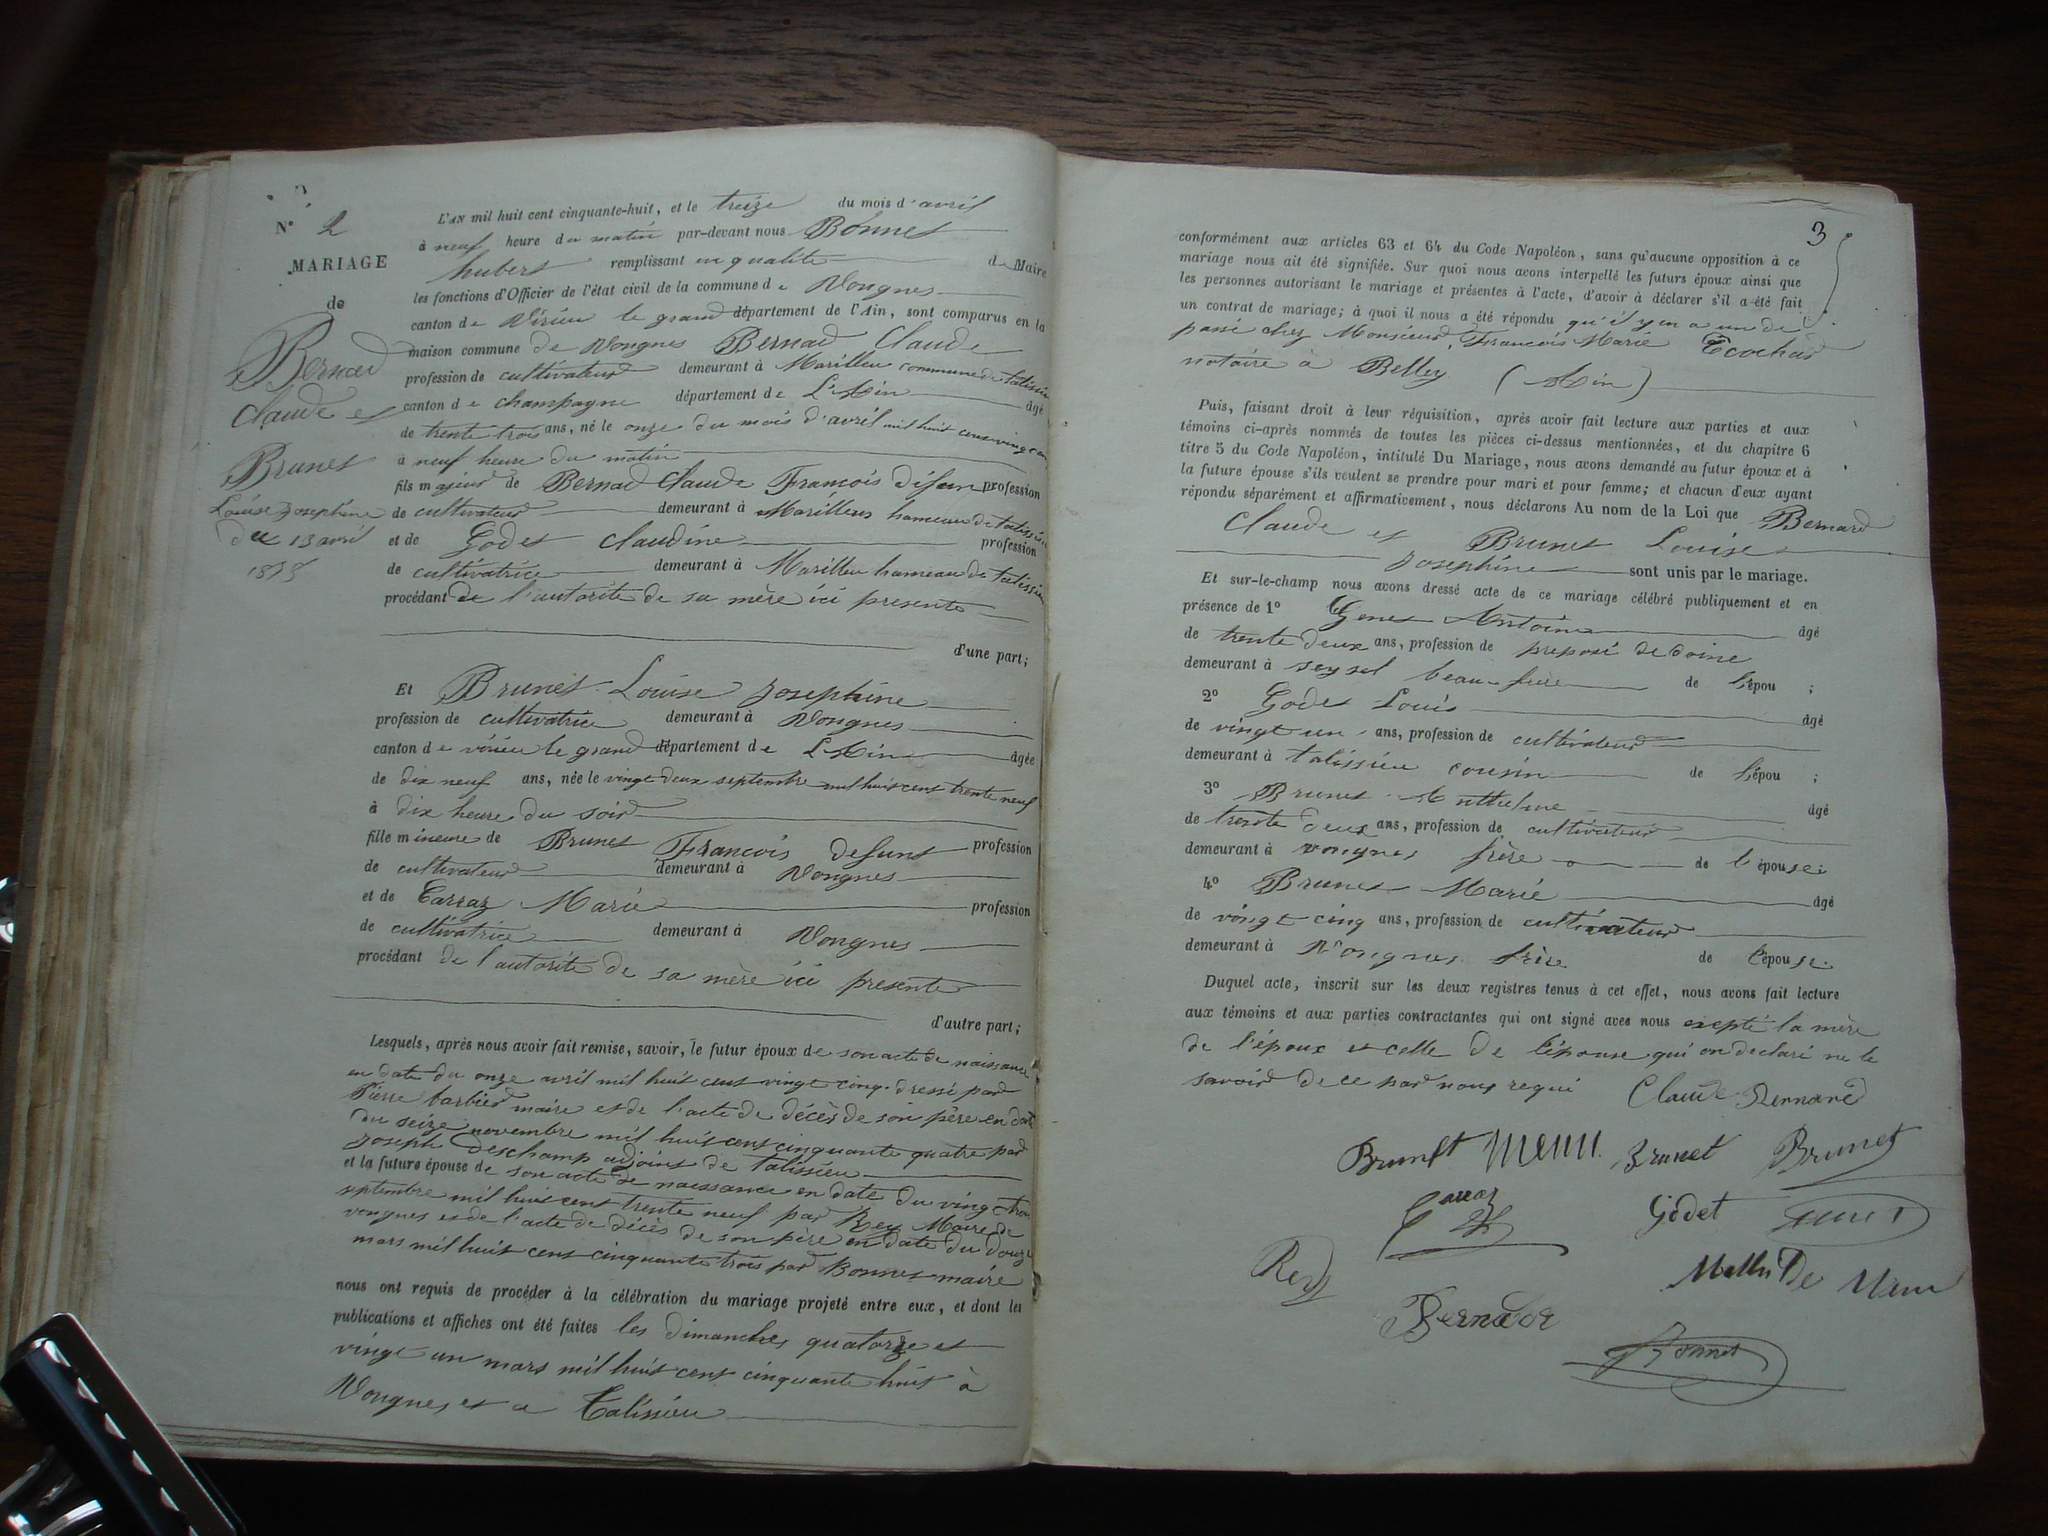 N° 2
MARIAGE
de
Bernard
Claude et
Brunet
Louise Josephine
du 13 avril
1858
L'AN mil huit cent cinquante-huit, et le treize du mois d'avril
à neuf heure du matin par-devant nous Bonnet
hubert remplissant en qualité de Maire
les fonctions d'Officier de l'état civil de la commune de Vongnes
canton de Virieu le grand département de l'Ain, sont comparus en la
maison commune de Vongnes Bernard Claude
profession de cultivateur demeurant à Marilleu commune de talissieu
canton de champagne département de L'Ain âgé
de trente trois ans, né le onze du mois d'avril mil huit cent vingt cinq
à neuf heure du matin
fils majeur de Bernard Claude François défunt profession
de cultivateur demeurant à Marilleux hameau de talissieu
et de Godet Claudine profession
de cultivatrice demeurant à Marilleu hameau de talissieu
procédant de l'autorité de sa mère ici presente
d'une part;
Et Brunet Louise Josephine
profession de cultivatrice demeurant à Vongnes
canton de virieu le grand département de L'Ain âgée
de dix neuf ans, née le vingt deux septembre mil huit cent trente neuf
à dix heure du soir
fille mineure de Brunet François defunt profession
de cultivateur demeurant à Vongnes
et de Carraz Marie profession
de cultivatrice demeurant à Vongnes
procédant de l'autorité de sa mère ici presente
d'autre part;
Lesquels, après nous avoir fait remise, savoir, le futur époux de son acte de naissance
en date du onze avril mil huit cent vingt cinq dressé par
Pierre barbier maire et de l'acte de décès de son père en date
du seize novembre mil huit cent cinquante quatre par
Joseph deschamp adjoint de talissieu
et la future épouse de son acte de naissance en date du vingt trois
septembre mil huit cent trente neuf par Rey Maire de
vongnes et de l'acte de décès de son père en date du douze
mars mil huit cent cinquante trois par Bonnet maire
nous ont requis de procéder à la célébration du mariage projeté entre eux, et dont les
publications et affiches ont été faites les dimanches quatorze et
vingt un mars mil huit cent cinquante huit à
Vongnes et a Talissieu
3
conformément aux articles 63 et 64 du Code Napoléon, sans qu'aucune opposition à ce
mariage nous ait été signifiée. Sur quoi nous avons interpellé les futurs époux ainsi que
les personnes autorisant le mariage et présentes à l'acte, d'avoir à déclarer s'il a été fait
un contrat de mariage; à quoi il nous a été répondu qu'il y en a un de
passé chez Monsieur François Marie Ecochard
notaire à Belley (Ain)
Puis, faisant droit à leur réquisition, après avoir fait lecture aux parties et aux
témoins ci-après nommés de toutes les pièces ci-dessus mentionnées, et du chapitre 6
titre 5 du Code Napoléon, intitulé Du Mariage, nous avons demandé au futur époux et à
la future épouse s'ils veulent se prendre pour mari et pour femme; et chacun d'eux ayant
répondu séparément et affirmativement, nous déclarons Au nom de la Loi que Bernard
Claude et Brunet Louise
Josephine sont unis par le mariage.
Et sur-le-champ nous avons dressé acte de ce mariage célébré publiquement et en
présence de 1° Genet Antoine âgé
de trente deux ans, profession de preposé de doine
demeurant à seyssel beau-frère de l'épou ;
2° Godet Louis âgé
de vingt un ans, profession de cultivateur
demeurant à talissieu cousin de l'épou ;
3° Brunet Anthelme âgé
de trente deux ans, profession de cultivateur
demeurant à vongnes frère de l'épouse;
4° Brunet Marie âgé
de vingt cinq ans, profession de cultivateur
demeurant à Vongnes frère de l'épouse.
Duquel acte, inscrit sur les deux registres tenus à cet effet, nous avons fait lecture
aux témoins et aux parties contractantes qui ont signé avec nous exepté la mère
de l'époux et celle de l'épouse qui on declaré ne le
savoir de ce par nous requi Claude Bernard
Brunet Brunet Brunet
Carraz
Godet
Rey
Bonnet